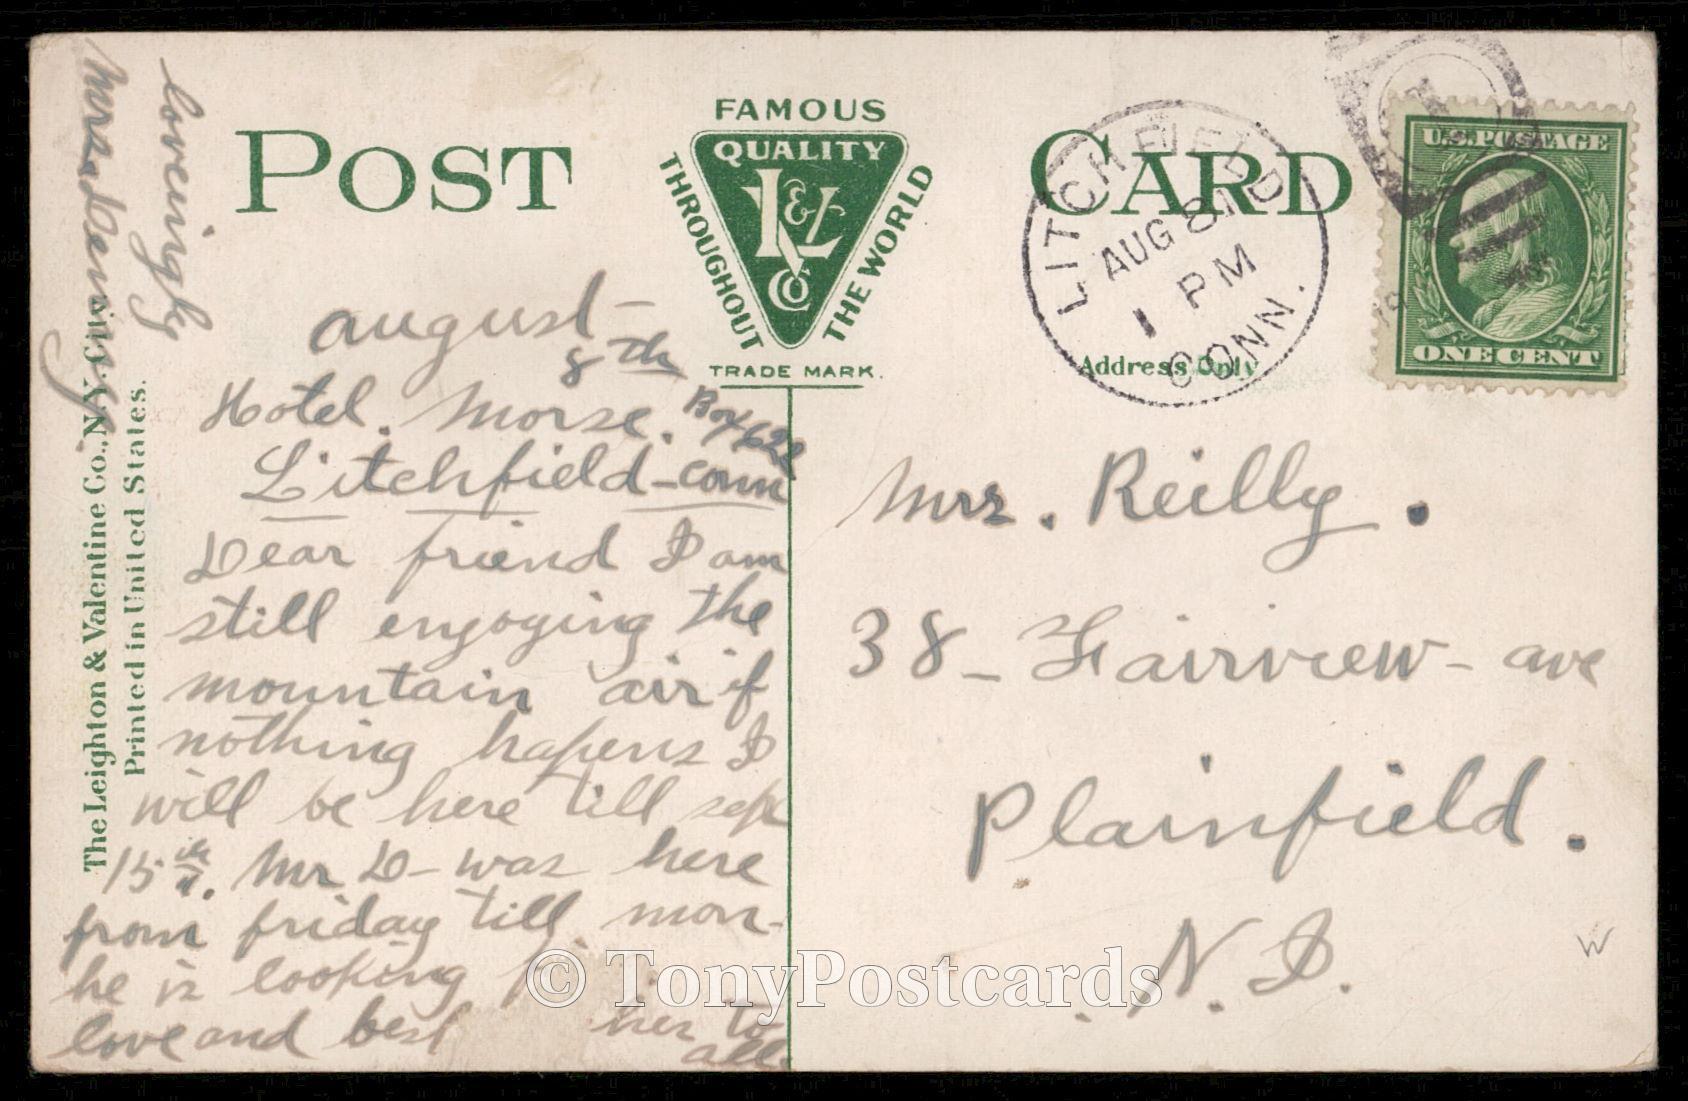 POST CARD
FAMOUS
QUALITY
L & V Co
THROUGHOUT THE WORLD
TRADE MARK.
LITCHFIELD
AUG 8
1 PM
CONN.
U.S. POSTAGE
ONE CENT
Address Only
The Leighton & Valentine Co., N.Y. City.
Printed in United States.
august -
8th
Hotel. Morse. Box 622
Litchfield - Conn
Dear friend I am
still engoging the
mountain air if
nothing hapens I
will be here till sept
15th. Mr D - was here
from friday till mon-
he is looking
love and best hes to
all.
loveingly
Mrs. Deming.
Mrs. Reilly.
38 - Fairview - ave
Plainfield.
N. J.
W
© TonyPostcards